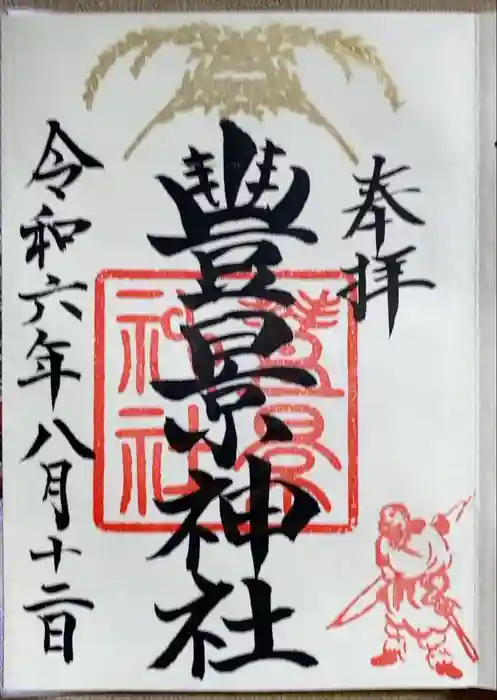 奉拝
豐景神社
豐景神社
令和六年八月十二日